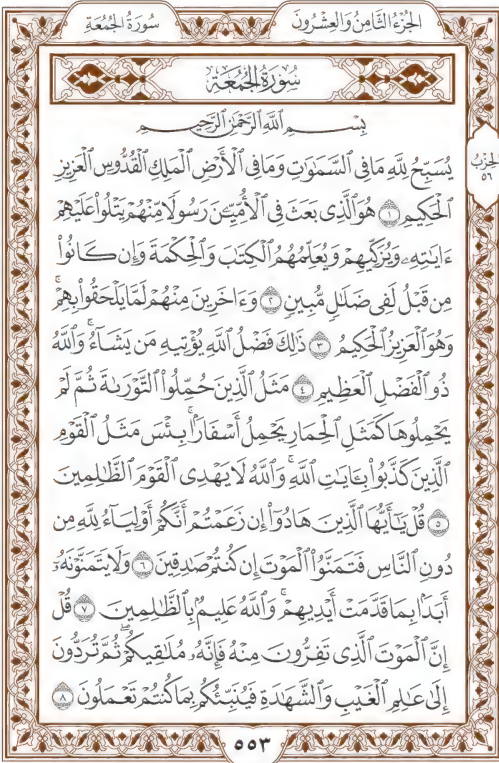 الجُزْءُ الثَّامِنُ وَالعِشْرُونَ
سُورَةُ الجُمُعَةِ
سُورَةُ الجُمُعَةِ
بِسْمِ اللَّهِ الرَّحْمَٰنِ الرَّحِيمِ
يُسَبِّحُ لِلَّهِ مَا فِي ٱلسَّمَٰوَٰتِ وَمَا فِي ٱلْأَرْضِ ٱلْمَلِكِ ٱلْقُدُّوسِ ٱلْعَزِيزِ
ٱلْحَكِيمِ ١ هُوَ ٱلَّذِي بَعَثَ فِي ٱلْأُمِّيِّـۧنَ رَسُولًا مِّنْهُمْ يَتْلُوا۟ عَلَيْهِمْ
ءَايَٰتِهِۦ وَيُزَكِّيهِمْ وَيُعَلِّمُهُمُ ٱلْكِتَٰبَ وَٱلْحِكْمَةَ وَإِن كَانُوا۟
مِن قَبْلُ لَفِي ضَلَٰلٍ مُّبِينٍ ٢ وَءَاخَرِينَ مِنْهُمْ لَمَّا يَلْحَقُوا۟ بِهِمْ ۚ
وَهُوَ ٱلْعَزِيزُ ٱلْحَكِيمُ ٣ ذَٰلِكَ فَضْلُ ٱللَّهِ يُؤْتِيهِ مَن يَشَآءُ ۚ وَٱللَّهُ
ذُو ٱلْفَضْلِ ٱلْعَظِيمِ ٤ مَثَلُ ٱلَّذِينَ حُمِّلُوا۟ ٱلتَّوْرَىٰةَ ثُمَّ لَمْ
يَحْمِلُوهَا كَمَثَلِ ٱلْحِمَارِ يَحْمِلُ أَسْفَارًۢا ۚ بِئْسَ مَثَلُ ٱلْقَوْمِ
ٱلَّذِينَ كَذَّبُوا۟ بِـَٔايَٰتِ ٱللَّهِ ۚ وَٱللَّهُ لَا يَهْدِي ٱلْقَوْمَ ٱلظَّٰلِمِينَ
٥ قُلْ يَٰٓأَيُّهَا ٱلَّذِينَ هَادُوٓا۟ إِن زَعَمْتُمْ أَنَّكُمْ أَوْلِيَآءُ لِلَّهِ مِن
دُونِ ٱلنَّاسِ فَتَمَنَّوُا۟ ٱلْمَوْتَ إِن كُنتُمْ صَٰدِقِينَ ٦ وَلَا يَتَمَنَّوْنَهُۥٓ
أَبَدًۢا بِمَا قَدَّمَتْ أَيْدِيهِمْ ۚ وَٱللَّهُ عَلِيمٌۢ بِٱلظَّٰلِمِينَ ٧ قُلْ
إِنَّ ٱلْمَوْتَ ٱلَّذِي تَفِرُّونَ مِنْهُ فَإِنَّهُۥ مُلَٰقِيكُمْ ۖ ثُمَّ تُرَدُّونَ
إِلَىٰ عَٰلِمِ ٱلْغَيْبِ وَٱلشَّهَٰدَةِ فَيُنَبِّئُكُم بِمَا كُنتُمْ تَعْمَلُونَ ٨
الحِزْبُ
٥٦
٥٥٣